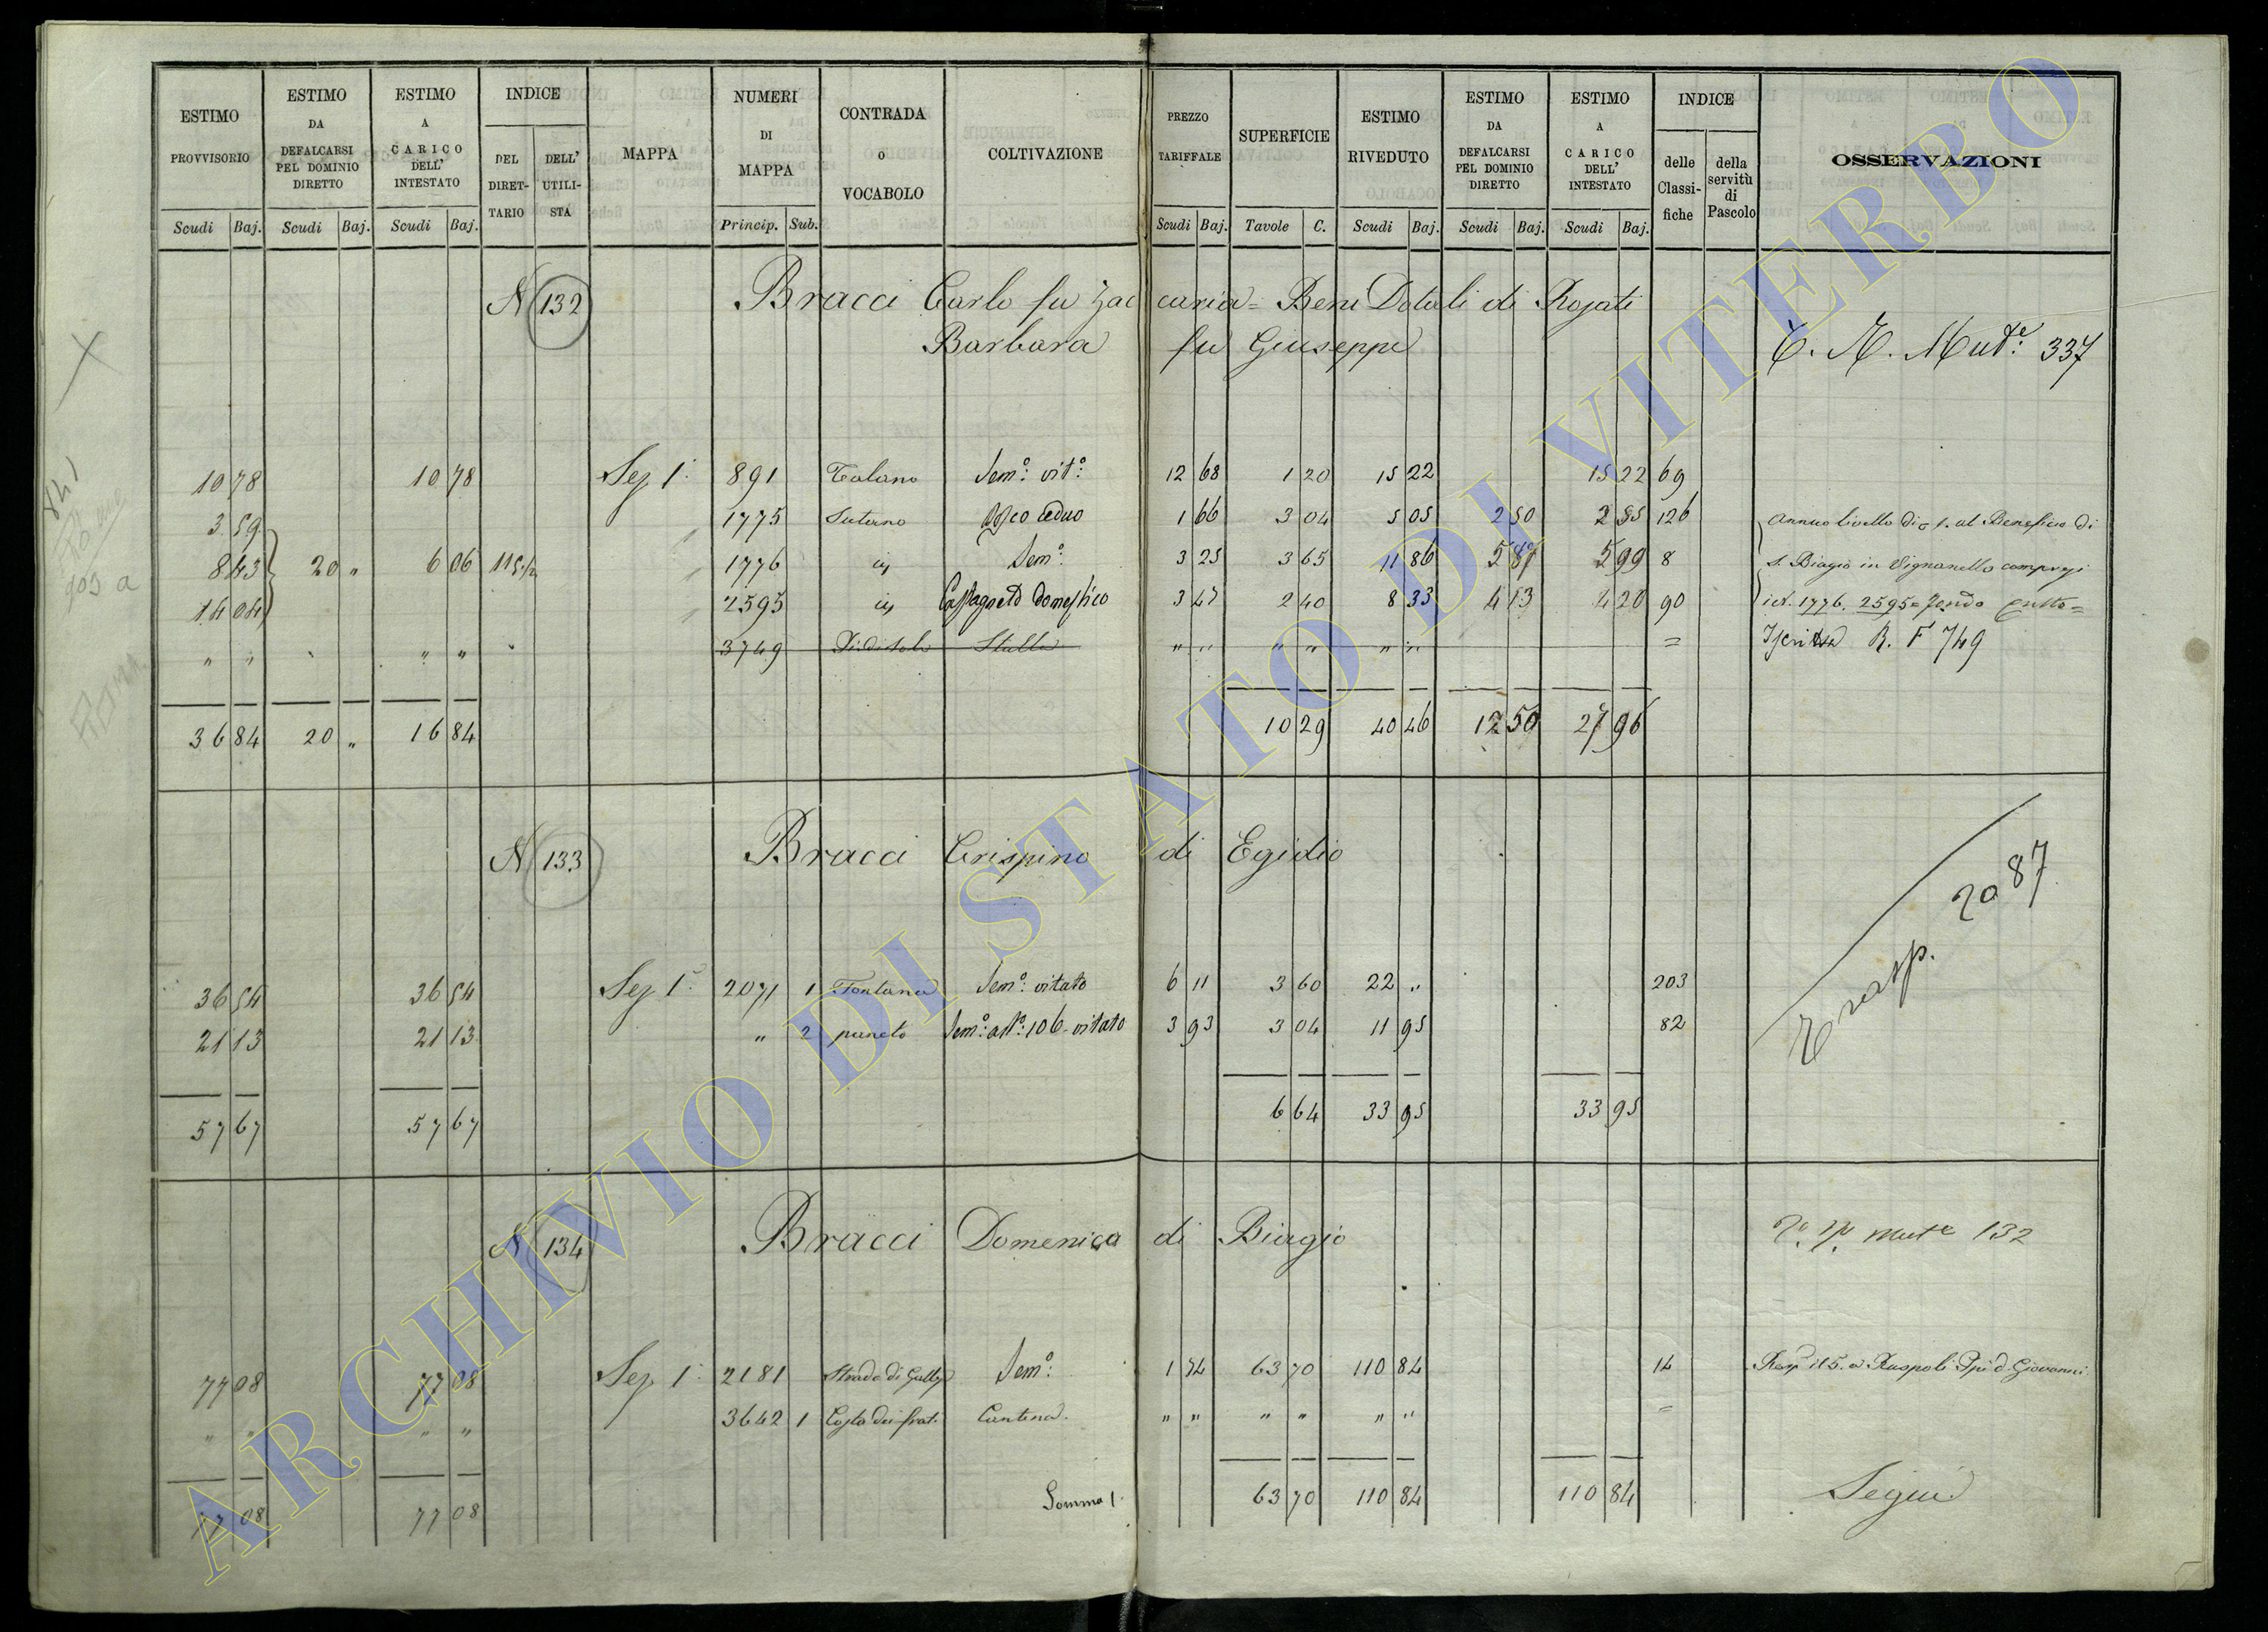 ESTIMO PROVVISORIO Scudi Baj. ESTIMO DA DEFALCARSI PEL DOMINIO DIRETTO Scudi Baj. ESTIMO A CARICO DELL' INTESTATO Scudi Baj. INDICE DEL DIRET-TARIO DELL' UTILI-STA MAPPA NUMERI DI MAPPA Princip. Sub. CONTRADA o VOCABOLO COLTIVAZIONE PREZZO TARIFFALE Scudi Baj. SUPERFICIE Tavole C. ESTIMO RIVEDUTO Scudi Baj. ESTIMO DA DEFALCARSI PEL DOMINIO DIRETTO Scudi Baj. ESTIMO A CARICO DELL' INTESTATO Scudi Baj. INDICE delle Classi-fiche della servitù di Pascolo OSSERVAZIONI
N 132 Bracci Carlo fu Zaccaria = Beni Dotali di Rosati
Barbara fu Giuseppe
337
10 78 10 78 Sez 1ª 891 Talano Sem.º vit.º 12 68 1 20 15 22 15 22 69
3 59 1775 Sutano Bosco ceduo 1 66 3 04 5 05 2 50 2 55 126 Annuo livello di al Beneficio di
8 43 20 " 6 06 1776 Sem.º 3 25 3 65 11 86 5 87 5 99 8 S. Biagio in Vignanello
14 04 2595 Castagneto domestico 3 47 2 40 8 33 4 13 4 20 90 1776. 2595
" " " " 3749 Stalla " " " " " " = R. F 749
36 84 20 " 16 84 10 29 40 46 12 50 27 96
N 133 Bracci Crispino di Egidio
Trasp. 87
36 54 36 54 Sez 1ª 2071 1 Fontana Sem.º vitato 6 11 3 60 22 " 203
21 13 21 13 " 2 Sem.º vitato 3 93 3 04 11 95 82
57 67 57 67 6 64 33 95 33 95
N 134 Bracci Domenica di Biagio
132
77 08 77 08 Sez 1ª 2181 Strada di Sem.º 1 74 63 70 110 84 14 Ruspoli Giovanni
" " " " 3642 1 Costa dei frati Cantina " " " " " " =
77 08 77 08 Somma 63 70 110 84 110 84 Segue
ARCHIVIO DI STATO DI VITERBO